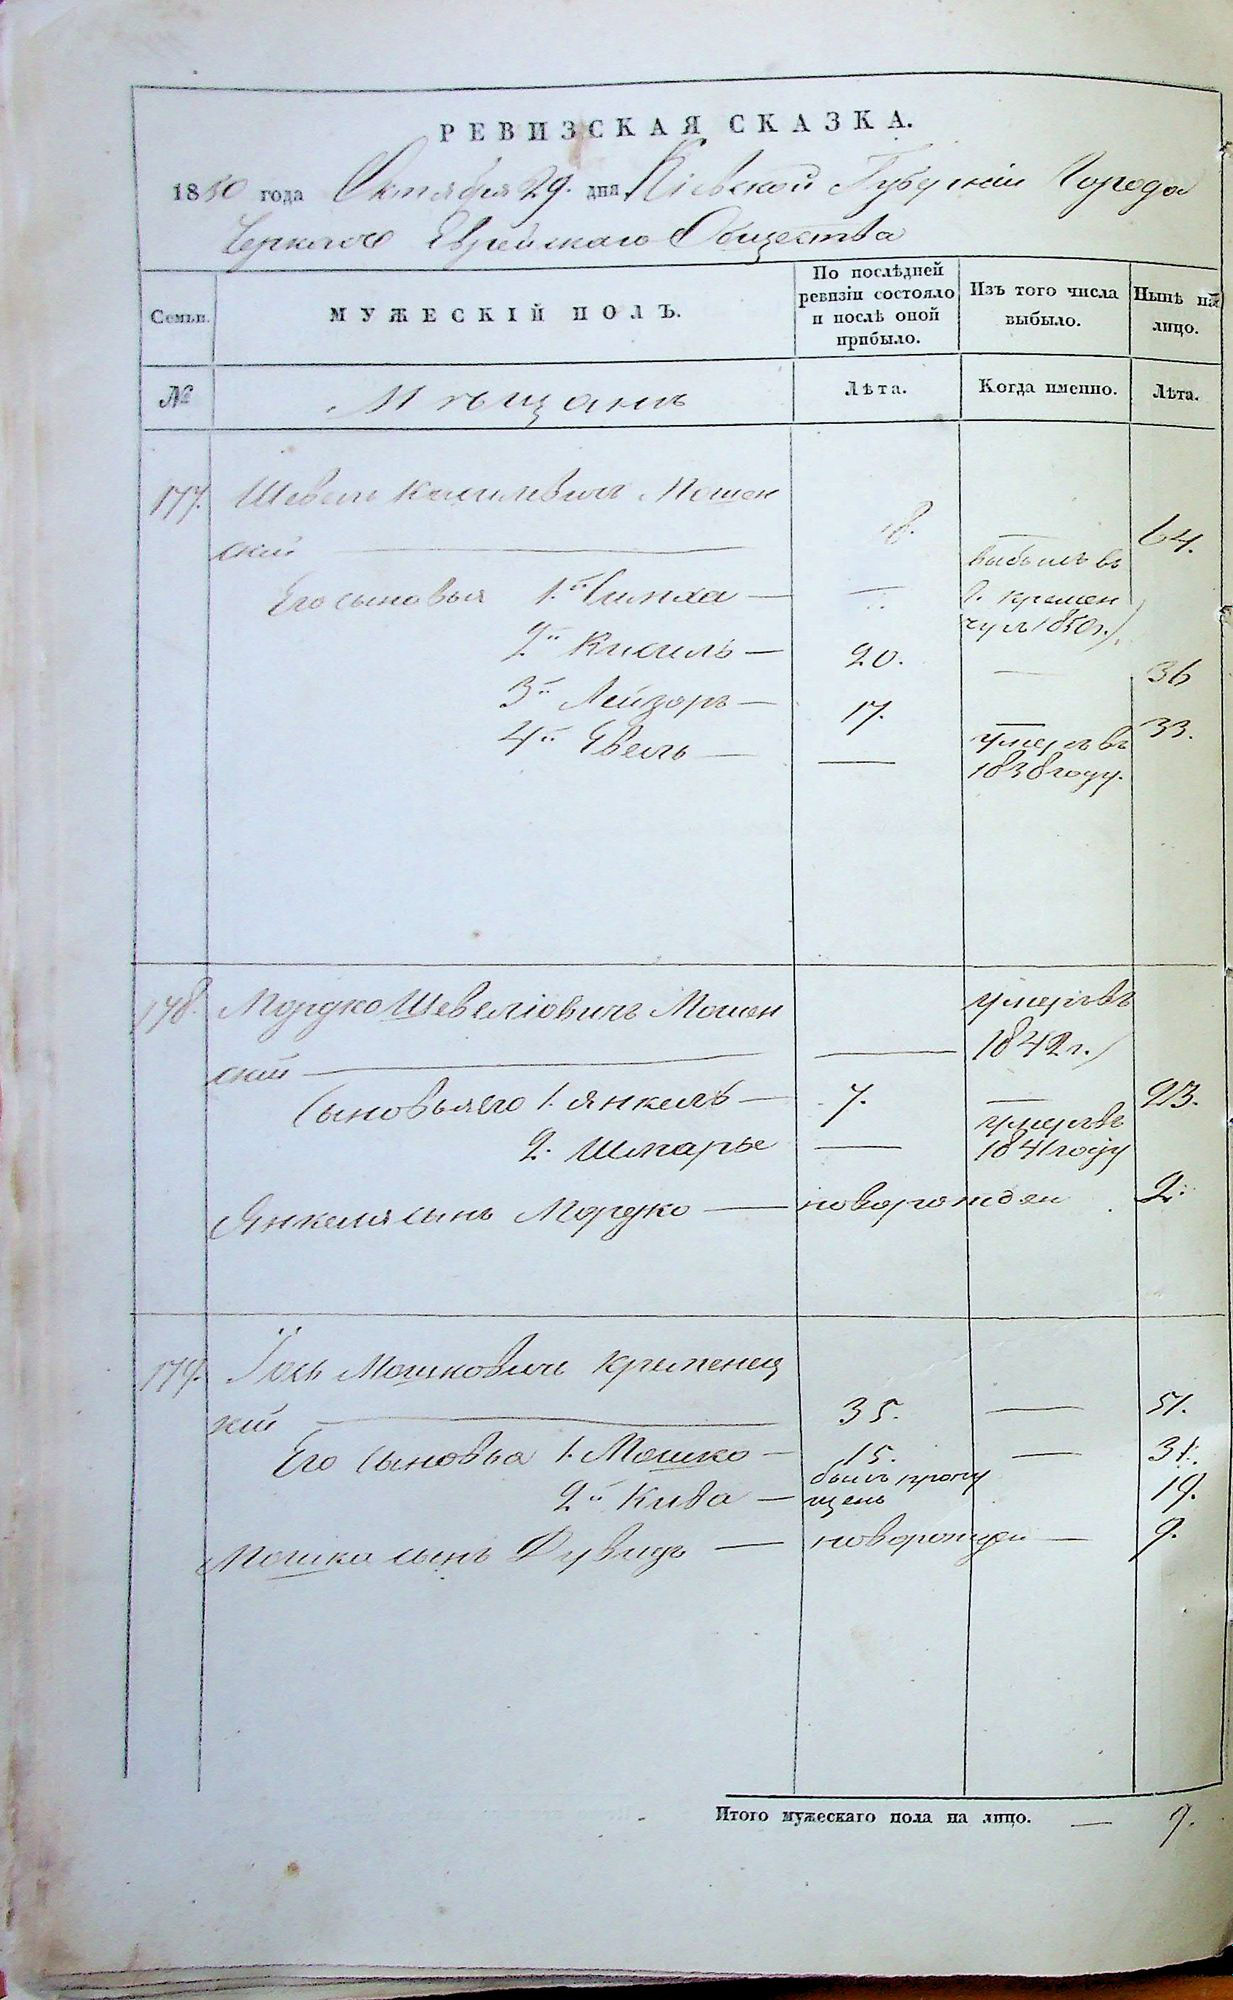 РЕВИЗСКАЯ СКАЗКА.
1850 года Октября 29. дня Кіевской Губерніи Города
Черкасъ Еврейскаго Общества
Семьи.
МУЖЕСКІЙ ПОЛЪ.
По послѣдней ревизіи состояло и послѣ оной прибыло.
Изъ того числа выбыло.
Нынѣ на лицо.
№
Мѣщанъ
Лѣта.
Когда именно.
Лѣта.
177. Шевель Кисилевичъ Мошен
скій 64.
Его сыновья 1.й Симха — выбылъ въ г. Кремен
чугъ 1850 г.
2й Кисиль — 20. — 36
3й Лейзоръ — 17. — 33.
4й — умеръ въ 1838 году.
178. Мордко Шевеліовичъ Мошен
скій — умеръ въ 1842 г.
Сыновья его 1. Янкель — 7. — 23.
2. Шмарье — умеръ въ 1841 году
Янкеля сынъ Мордко — новорожден 2.
179. Іось Мошковичъ Кременец
кій — 35. — 51.
Его сыновья 1. Мошко — 15. — 31.
2й Кива — былъ пропу
щенъ 19.
Мошка сынъ Дувидъ — новорожден — 9.
Итого мужескаго пола на лицо. — 9.